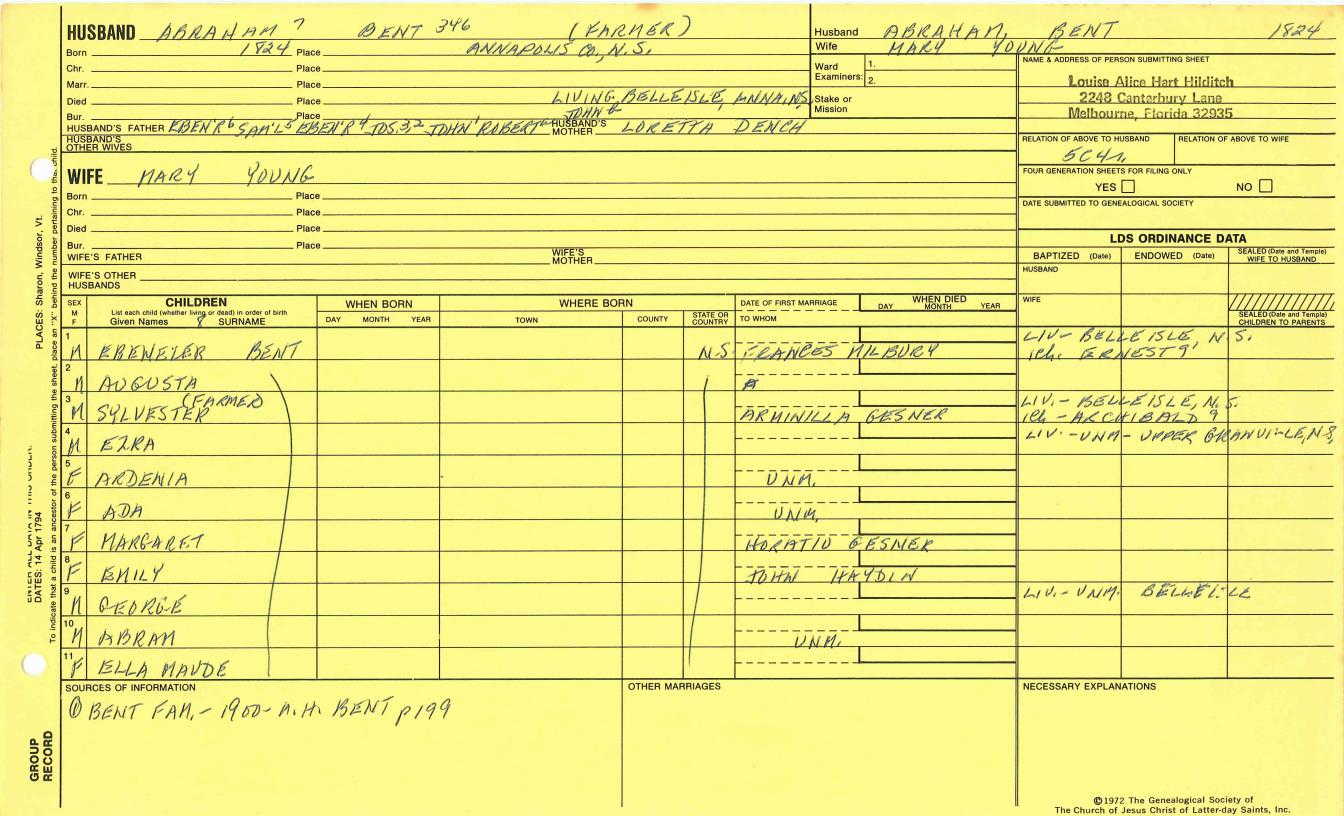 HUSBAND ABRAHAM 7 BENT 346 (FARMER)
Born 1824 Place ANNAPOLIS CO, N.S.
Chr. Place
Marr. Place
Died Place LIVING, BELLEISLE, ANNA, N.S.
Bur. Place JOHN
HUSBAND'S FATHER EBEN'R 6 SAM'L 5 EBEN'R 4 JOS. 3,2 JOHN 1 ROBERT HUSBAND'S MOTHER LORETTA DENCH
HUSBAND'S OTHER WIVES
Husband ABRAHAM, BENT 1824
Wife MARY YOUNG
Ward Examiners: 1.
2.
Stake or Mission
NAME & ADDRESS OF PERSON SUBMITTING SHEET
Louise Alice Hart Hilditch
2248 Canterbury Lane
Melbourne, Florida 32935
RELATION OF ABOVE TO HUSBAND RELATION OF ABOVE TO WIFE
5C4r.
FOUR GENERATION SHEETS FOR FILING ONLY
YES NO
DATE SUBMITTED TO GENEALOGICAL SOCIETY
WIFE MARY YOUNG
Born Place
Chr. Place
Died Place
Bur. Place
WIFE'S FATHER WIFE'S MOTHER
WIFE'S OTHER HUSBANDS
LDS ORDINANCE DATA
BAPTIZED (Date) ENDOWED (Date) SEALED (Date and Temple) WIFE TO HUSBAND
HUSBAND
WIFE
SEALED (Date and Temple) CHILDREN TO PARENTS
SEX M F CHILDREN WHEN BORN WHERE BORN DATE OF FIRST MARRIAGE WHEN DIED
List each child (whether living or dead) in order of birth
Given Names 8 SURNAME DAY MONTH YEAR TOWN COUNTY STATE OR COUNTRY TO WHOM DAY MONTH YEAR
1 M EBENEZER BENT N.S. FRANCES MILBURY LIV- BELLEISLE, N.S.
ich. ERNEST 9
2 M AUGUSTA
3 M SYLVESTER (FARMER) ARMINILLA GESNER LIV.- BELLEISLE, N.S.
ich - ARCHIBALD 9
4 M EZRA LIV.-UNM- UPPER GRANVILLE, N.S.
5 F ARDENIA UNM.
6 F ADA UNM.
7 F MARGARET HORATIO GESNER
8 F EMILY JOHN HAYDEN
9 M GEORGE LIV.- UNM. BELLEISLE
10 M ABRAM UNM.
11 F ELLA MAUDE
SOURCES OF INFORMATION
① BENT FAM. - 1900- A.H. BENT p199
OTHER MARRIAGES
NECESSARY EXPLANATIONS
©1972 The Genealogical Society of
The Church of Jesus Christ of Latter-day Saints, Inc.
GROUP RECORD
DATES: 14 Apr 1794
PLACES: Sharon, Windsor, Vt.
To indicate that a child is an ancestor of the person submitting the sheet, place an "X" behind the number pertaining to the child.